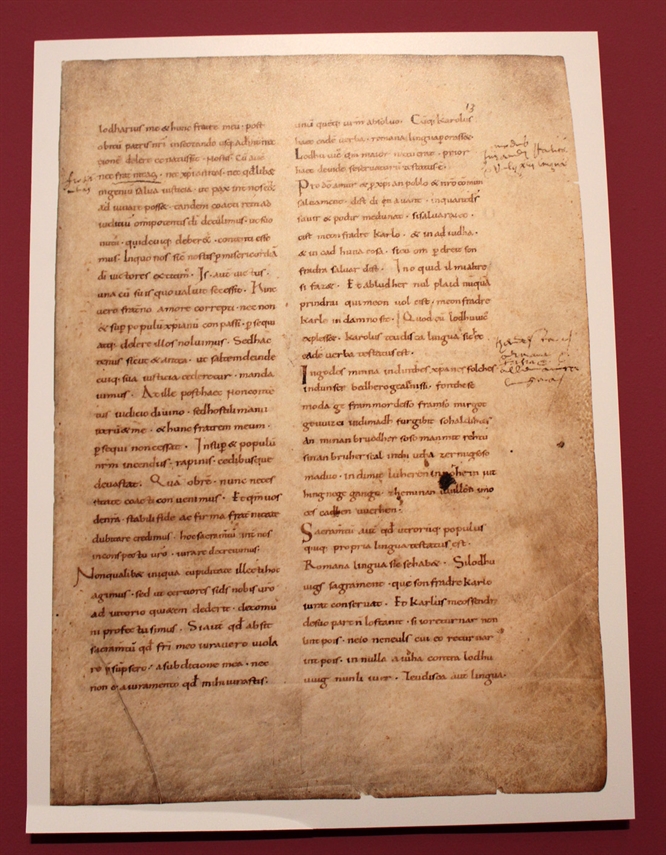 lodharius me & hunc fratrē meū · post
obitū patris nr̄i insectando usq; ad inter
ne
cionē delere conatussit · Nostis · Cū aut̄
nec fraternitas · nec xp̄ianitas · nec qd̄libet
ingeniū salva iusticia · ut pax int̄ nos eēt ·
adiuvare posset · tandem coacti rem ad
iudiciū omnipotentis dī detulimus · ut suo
nutu · quid cuiq; deberet̄ · contenti esse
mus · In quo nos sic̄ nostis p̱ misericordiā
dī victores extitim̄ · Is · aut̄ victus ·
una cū suis quo valuit secessit · Hinc
vero fraterno amore correpti · nec non
& sup̱ populū xp̄ianū con passi · p̱sequi
atq; delere illos noluimus · Sed hac
tenus sicut & antea · ut saltem deinde
cuiq; sua iusticia cederetur · manda
vimus · At ille post haec non conten
tus iudicio divino · sed hostili manu
iterū & me · & hunc fratrem meum ·
p̱sequi non cessat · Insup̱ & populū
nr̄m incendiis · rapinis · cedibusque
devastat · Quā obrē · nunc neces
sitate coacti con venimus · Et qm̄ vos
de nr̄a · stabili fide ac firma frat̄nitate
dubitare credimus · hoc sacramtū int̄ nos
in conspectu vr̄o · iurare decrevimus ·
Non qualibet iniqua cupiditate illecti hoc
agimus · sed ut certiores si dś nobis vr̄o
adiutorio quietem dederit · de comū
ni profectu simus · Si aut̄ qd̄ absit
sacramtū qd̄ fr̄i meo iuravero viola
re p̱sūpsero · a subditione mea · nec
non & a iuramento qd̄ mihi iurastis ·
13
unū quēq; vr̄m absolvo · Cūq; karolus
haec eadē verba · romana lingua porasset
Lodhuvic̄ qm̄ maior natu erat · prior
haec deinde se servaturū testatus ē ·
Pro dō amur & p̱ xp̄ian poblo & nr̄o cōmun
salvament · dist di en avant · inquantdś
savir & podir medunat · sisalvaraieo ·
cist meon fradre karlo · & in ad iudha ·
& in cad huna cosa · sicū om p̱ dreit son
fradra salvar dift · Ino quid il mialtre
si fazet · Et abludher nul plaid nūquā
prindrai qui meon vol cist · meon fradre
karle in damno sit · Quod cū lodhuvic̄
explesset · karolus teudisca lingua sic̄ ec
eadē verba testatus est ·
In godes minna indinthes xp̄anes folches
indunser bedhero gealtnissi · fonthese
moda ge frammordesso framso mirgot
gewizci indimadh furgibit sohaldihtes
an minan bruodher soso manmit rehtu
sinan bruher scal inthi utha zermigsoso
maduo · indimit luheren innohein iut
hing nege gango · zheminan willon imo
ces cadhen werhen ·
Sacramtū aut̄ qd̄ utrorūq; populus
quiq; propria lingua testatus est ·
Romana lingua sic̄ se habet · Silodhu
uigs sagrament · que son fradre karlo
iurat conservat · Et karlus meossendra
desuo part n̄ lostanit · si io returnar non
lint pois · neio neneuls cui eo returnar
int pois · in nulla aiudha contra lodhu
uuig nunli iuer · Teudisca aut̄ lingua ·